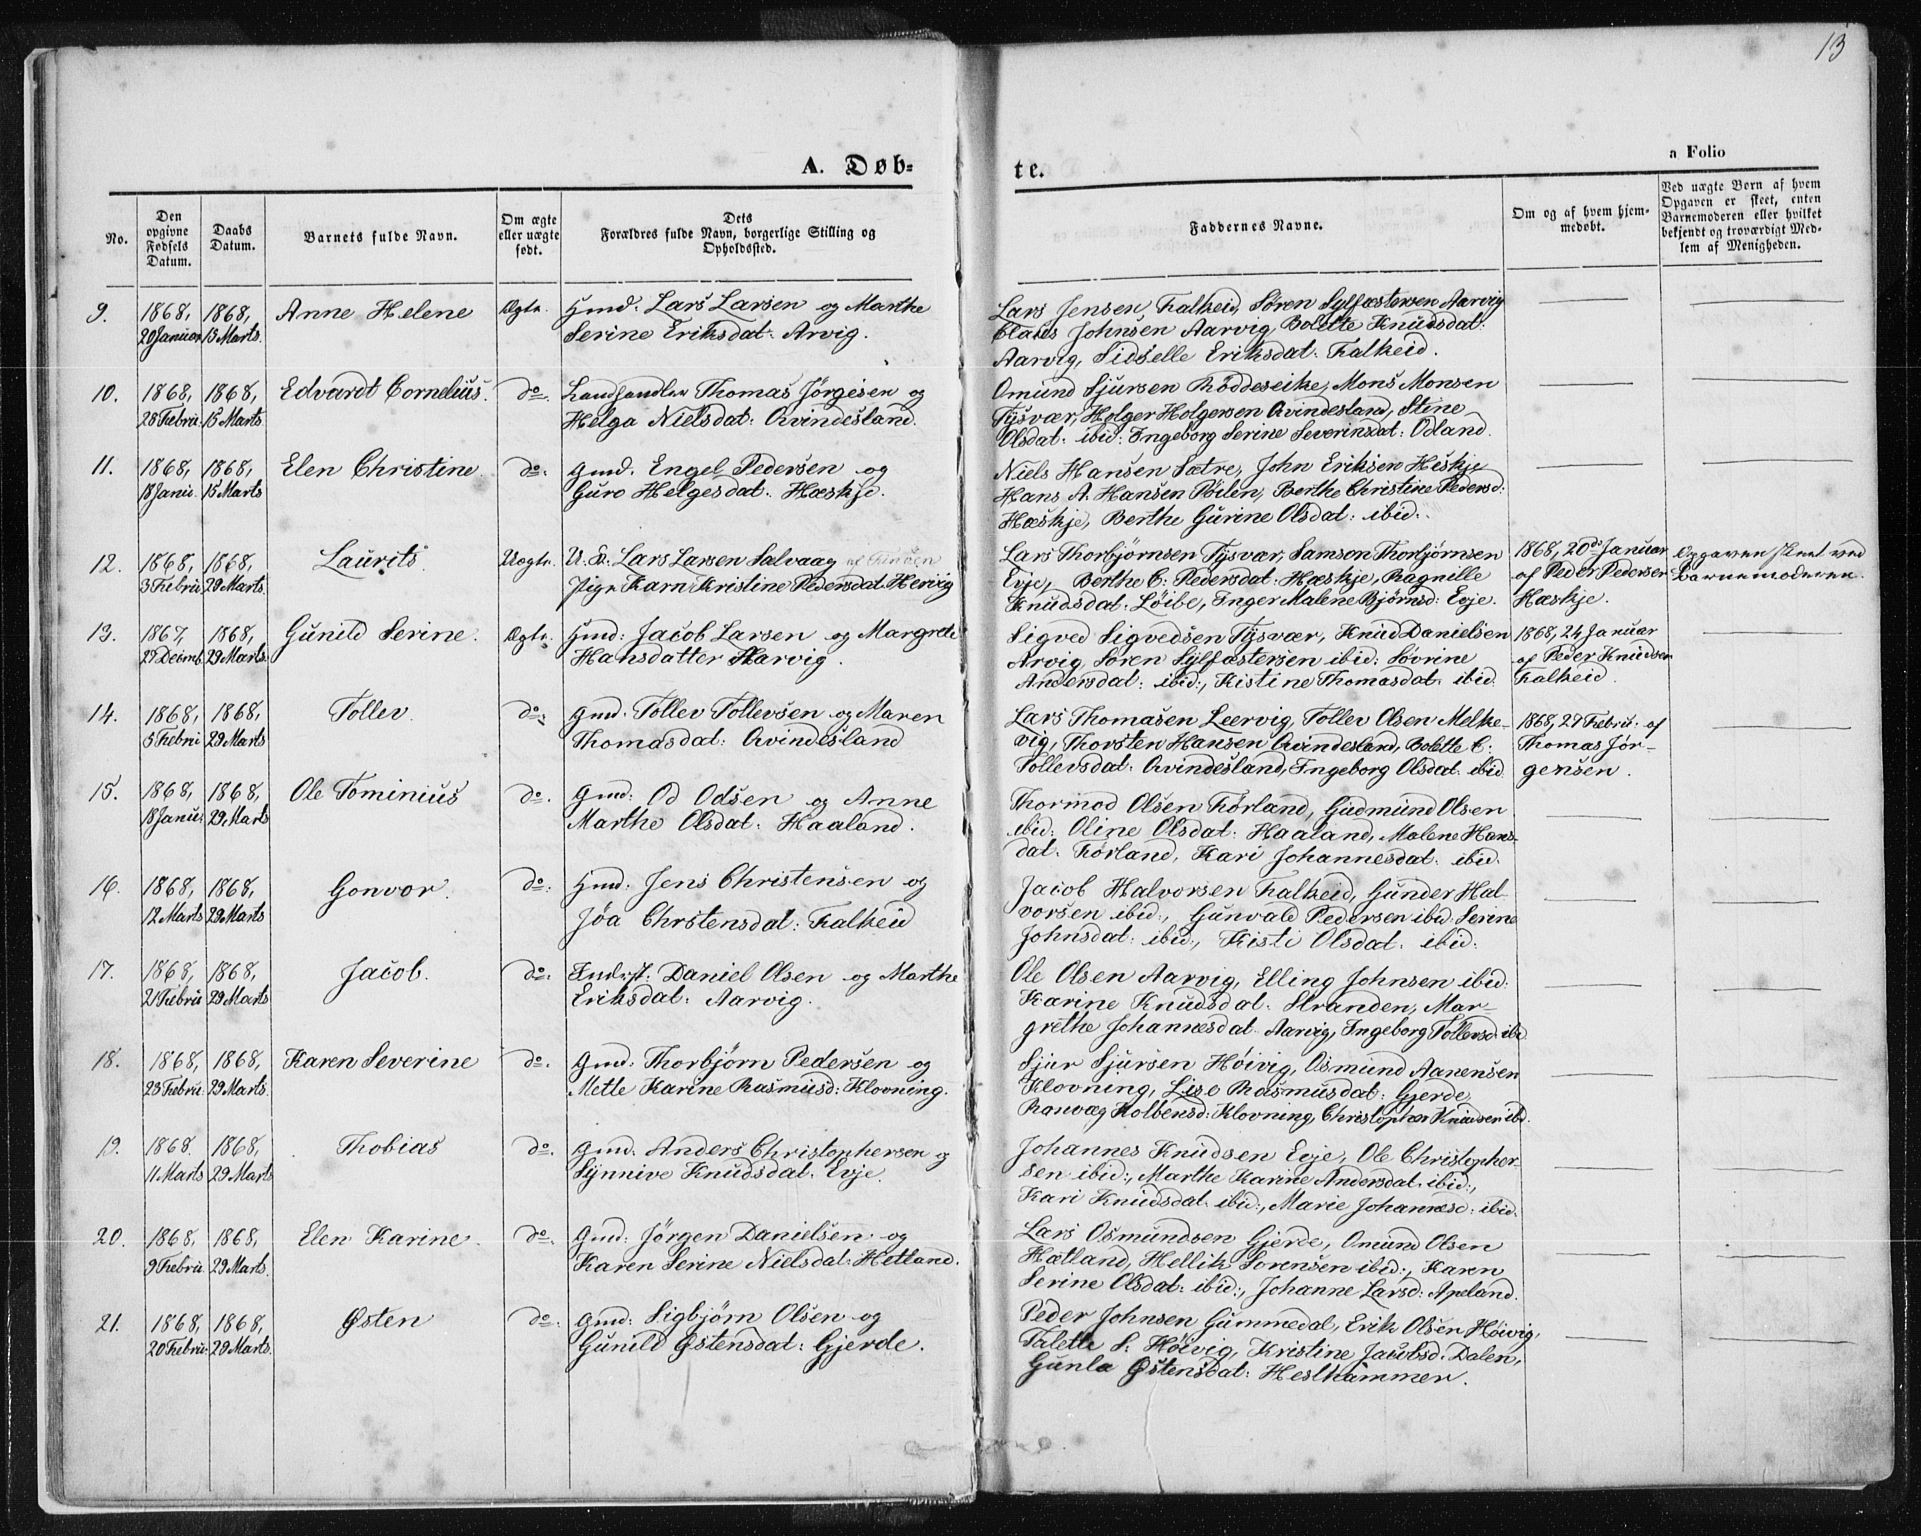 13
a Folio
A. Døb-
te.
No.
Den opgivne Fødsels Datum.
Daabs Datum.
Barnets fulde Navn.
Om ægte eller uægte født.
Dets Forældres fulde Navn, borgerlige Stilling og Opholdssted.
Faddernes Navne.
Om og af hvem hjemmedøbt.
Ved uægte Børn af hvem Opgaven er skeet, enten Barnemoderen eller hvilket bekjendt og troværdigt Medlem af Menigheden.
9. 1868, 1868, Anne Helene Ægte. Gmd: Lars Larsen og Marthe
20 Januar 15 Marts. Serine Eriksdat: Arvig.
Lars Jensen Falkeid, Søren Sylfæstersen Aarvig
Claies Johnsen Aarvig, Bolette Knudsdat:
Aarvig, Sidselle Eriksdat: Falkeid.
10. 1868, 1868, Edvardt Cornelius. do. Landhandler Thomas Jørgesen og
28 Febru: 15 Marts. Helga Nielsdat: Qvindesland.
Omund Sjursen Røddeseike, Mons Monsen
Tysvær, Holger Holgersen Qvindesland, Stine
Olsdat: ibid: Ingeborg Serine Severinsdat: Odland.
11. 1868, 1868, Elen Christine do: Gmd. Engel Pedersen og
18 Janu. 15 Marts Guro Helgesdat: Hæskje.
Niels Hansen Sætre, John Eriksen Heskje
Hans A. Hansen Pøilen, Berthe Christine Pedersd:
Hæskje, Berthe Gurine Olsdat: ibid:.
12. 1868, 1868, Laurits. Uægte. U. K. Lars Larsen Salvaag
3 Febru 29 Marts. Pige Karn Kristine Pedersdat. Hervig
Lars Thorbjørnsen Tysvær, Samson Thorbjørnsen
Evje, Berthe C: Pedersdat: Hæskje, Ragnille
Knudsdat: Løibe, Inger Malene Bjørnsd: Evje.
1868, 20de Januar
af Peder Pedersen
Hæskje.
Opgaven skeet ved
Barnemoderen.
13. 1867, 1868, Gunild Serine. Ægte. Gmd: Jacob Larsen og Margrete
27 Decmb. 29 Marts. Hansdatter Aarvig.
Sigved Sigvedsen Tysvær, Knud Danielsen
Arvig, Søren Sylfæstersen ibid: Søvrine
Andersdat: ibid:, Kistine Thomasdat: ibid.
1868, 24 Januar
af Peder Knudsen
Falkeid.
14. 1868, 1868, Tollev. do: Gmd. Tollev Tollevsen og Maren
5 Febru 29 Marts Thomasdat: Qvindesland
Lars Thomasen Leervig, Tollev Olsen Melke-
vig, Thorsten Hansen Qvindesland, Bolette C:
Tollevsdat: Qvindesland, Ingeborg Olsdat: ibid.
1868, 27 Febru: af
Thomas Jør-
gensen.
15. 1868, 1868, Ole Tominius do: Gmd: Od Odsen og Anne
18 Janu: 29 Marts Marthe Olsdat: Haaland.
Thormod Olsen Førland, Gudmund Olsen
ibid: Oline Olsdat: Haaland, Malene Hans-
dat: Førland, Kari Johannesdat: ibid.
16. 1868, 1868, Gonvor. do: Gmd: Jens Christensen og
12 Marts 29 Marts Jøa Chrstensdat: Falkeid
Jacob Halvorsen Falkeid, Gunder Hal-
vorsen ibid:, Gunvald Pedersen ibid: Serine
Johnsdat: ibid:, Kisti Olsdat: ibid:
17. 1868, 1868, Jacob. do: Inderst: Daniel Olsen og Marthe
21 Febru 29 Marts Eriksdat: Aarvig.
Ole Olsen Aarvig, Elling Johnsen ibid:
Karine Knudsdat: Stranden, Mar-
grethe Johannesdat: Aarvig, Ingeborg Tollevsd: ibid.
18. 1868, 1868, Karen Severine do. Gmd: Thorbjørn Pedersen og
23 Febru. 29 Marts. Mette Karine Rasmusd: Klovning.
Sjur Sjursen Høivig, Osmund Aanensen
Klovning, Lise Rasmusdat: Gjerde,
Ranvæg Kolbensd: Klovning, Christopher Knudsen ibd.
19. 1868. 1868, Thobias do. Gmd: Anders Christophersen og
11 Marts 29 Marts Synnive Knudsdat: Evje.
Johannes Knudsen Evje, Ole Christopher-
sen ibid:, Marthe Karine Andersdat: ibid:,
Kari Knudsdat: ibid:, Marie Johannesd: ibid:
20. 1868, 1868, Elen Karine. do: Gmd: Jørgen Danielsen og
9 Febru. 29 Marts. Karen Serine Nielsdat: Hetland.
Lars Osmundsen Gjerde, Omund Olsen
Hætland, Hellik Sorensen ibid:, Karen
Serine Olsdat: ibid:, Johanne Larsd: Apeland.
21. 1868, 1868, Østen do: Gmd: Sigbjørn Olsen og
20 Febru 29 Marts. Gunild Østensdat: Gjerde.
Peder Johnsen Gummedal, Erik Olsen Høivig,
Talette S: Høivig, Kristine Jacobsd: Dalen,
Gunla Østensdat: Heslhammer.